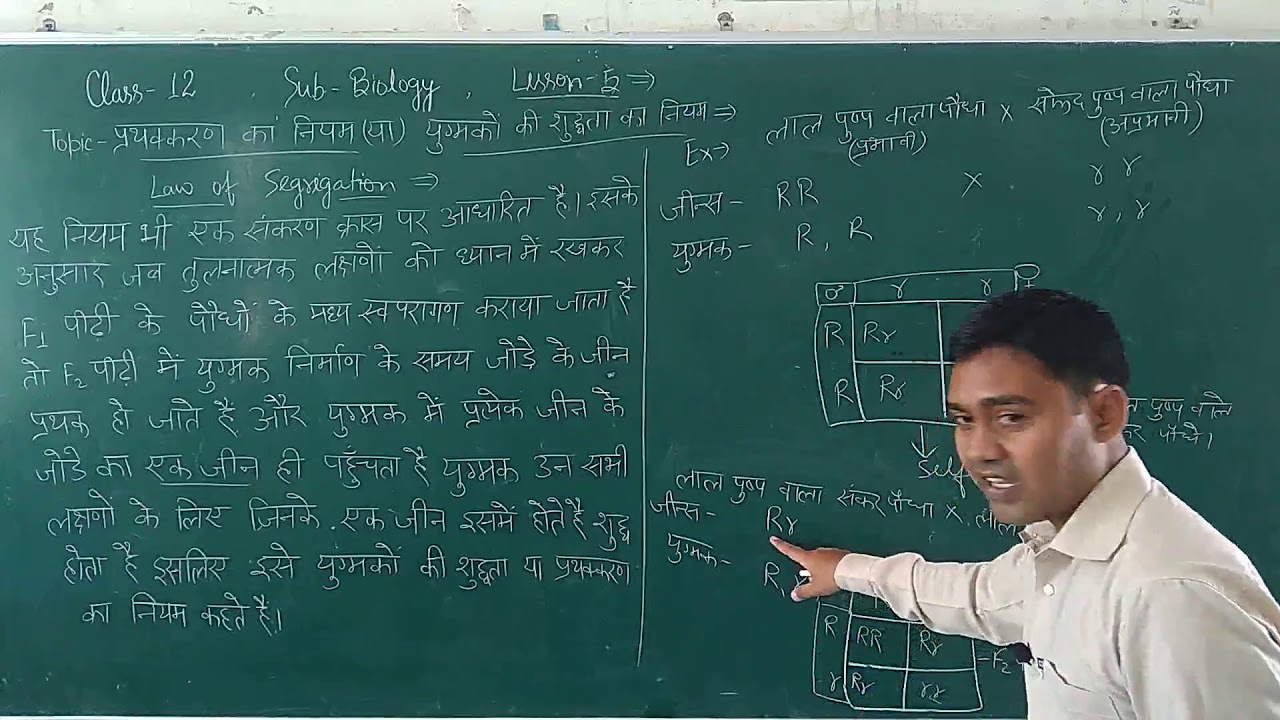 Class-12, Sub-Biology, Lesson-5 ⇒
Topic-प्रथक्करण का नियम (या) युग्मकों की शुद्धता का नियम ⇒
Law of Segrigation ⇒
यह नियम भी एक संकरण क्रास पर आधारित है। इसके
अनुसार जब तुलनात्मक लक्षणों को ध्यान में रखकर
F₁ पीढ़ी के पौधों के मध्य स्वपरागण कराया जाता है
तो F₂ पीढ़ी में युग्मक निर्माण के समय जोड़े के जीन
प्रथक हो जाते हैं और युग्मक में प्रत्येक जीन के
जोडे का एक जीन ही पहुँचता है युग्मक उन सभी
लक्षणों के लिए जिनके एक जीन इसमें होते है शुद्ध
होता है इसलिए इसे युग्मकों की शुद्धता या प्रथक्करण
का नियम कहते हैं।
Ex⇒ लाल पुष्प वाला पौधा × सफेद पुष्प वाला पौधा
(प्रभावी) (अप्रभावी)
जीन्स- RR × r r
युग्मक- R, R r, r
♂ r r ♀
R Rr
R Rr
पुष्प वाले
पौधे।
Self
लाल पुष्प वाला संकर पौधा × लाल
जीन्स- Rr
युग्मक- R, r
R RR Rr =F₂
r Rr rr